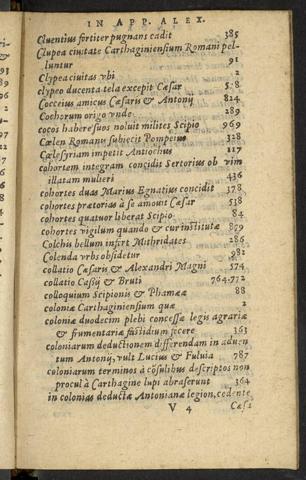 IN APP. ALEX.
Cluentius fortiter pugnans cadit 385
Clupea ciuitate Carthaginiensium Romani pel-
luntur 91
Clypea ciuitas vbi 2
clypeo ducenta tela excepit Cæsar 578
Cocceius amicus Cæsaris & Antonij 824
Cochorum origo vnde 289
cocos habere suos noluit milites Scipio 969
Cœlen Romanu subiecit Pompeius 328
Cœlesyriam impetit Antiochus 117
cohortem integram concidit Sertorius ob vim
illatam mulieri 436
cohortes duas Marius Egnatius concidit 378
cohortes prætorias à se amouit Cæsar 538
cohortes quatuor liberat Scipio 84
cohortes vigilum quando & cur institutæ 879
Colchis bellum infert Mithridates 286
Colenda vrbs obsidetur 981
collatio Cæsaris & Alexandri Magni 574
collatio Cassij & Bruti 764.772
colloquium Scipionis & Phameæ 88
coloniæ Carthaginiensium quæ 2
coloniæ duodecim plebi concessæ legis agrariæ
& frumentariæ fastidium fecere 363
coloniarum deductionem differendam in aduen
tum Antonij, vult Lucius & Fuluia 787
coloniarum terminos à cōsulibus descriptos non
procul à Carthagine lupi abraserunt 364
in colonias deductæ Antonianæ legion, cedente
V 4 Cæsa